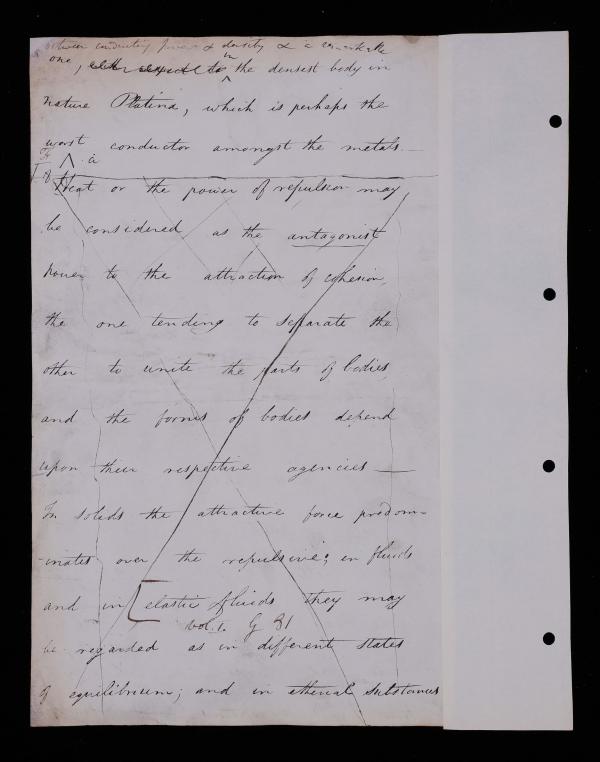 between conducting power & density & is remarkable
one, in
to ^ the densest body in
nature Platina, which is perhaps the
worst conductor amongst the metals. —
Heat or the power of repulsion may
be considered as the antagonist
power to the attraction of cohesion,
the one tending to separate the
other to unite the parts of bodies,
and the forms of bodies depend
upon their respective agencies —
In solids the attractive force predom-
-inates over the repulsive; in fluids
and in [elastic fluids they may
vol. 1. G 81
be regarded as in different states
of equilibrium; and in ethereal substances